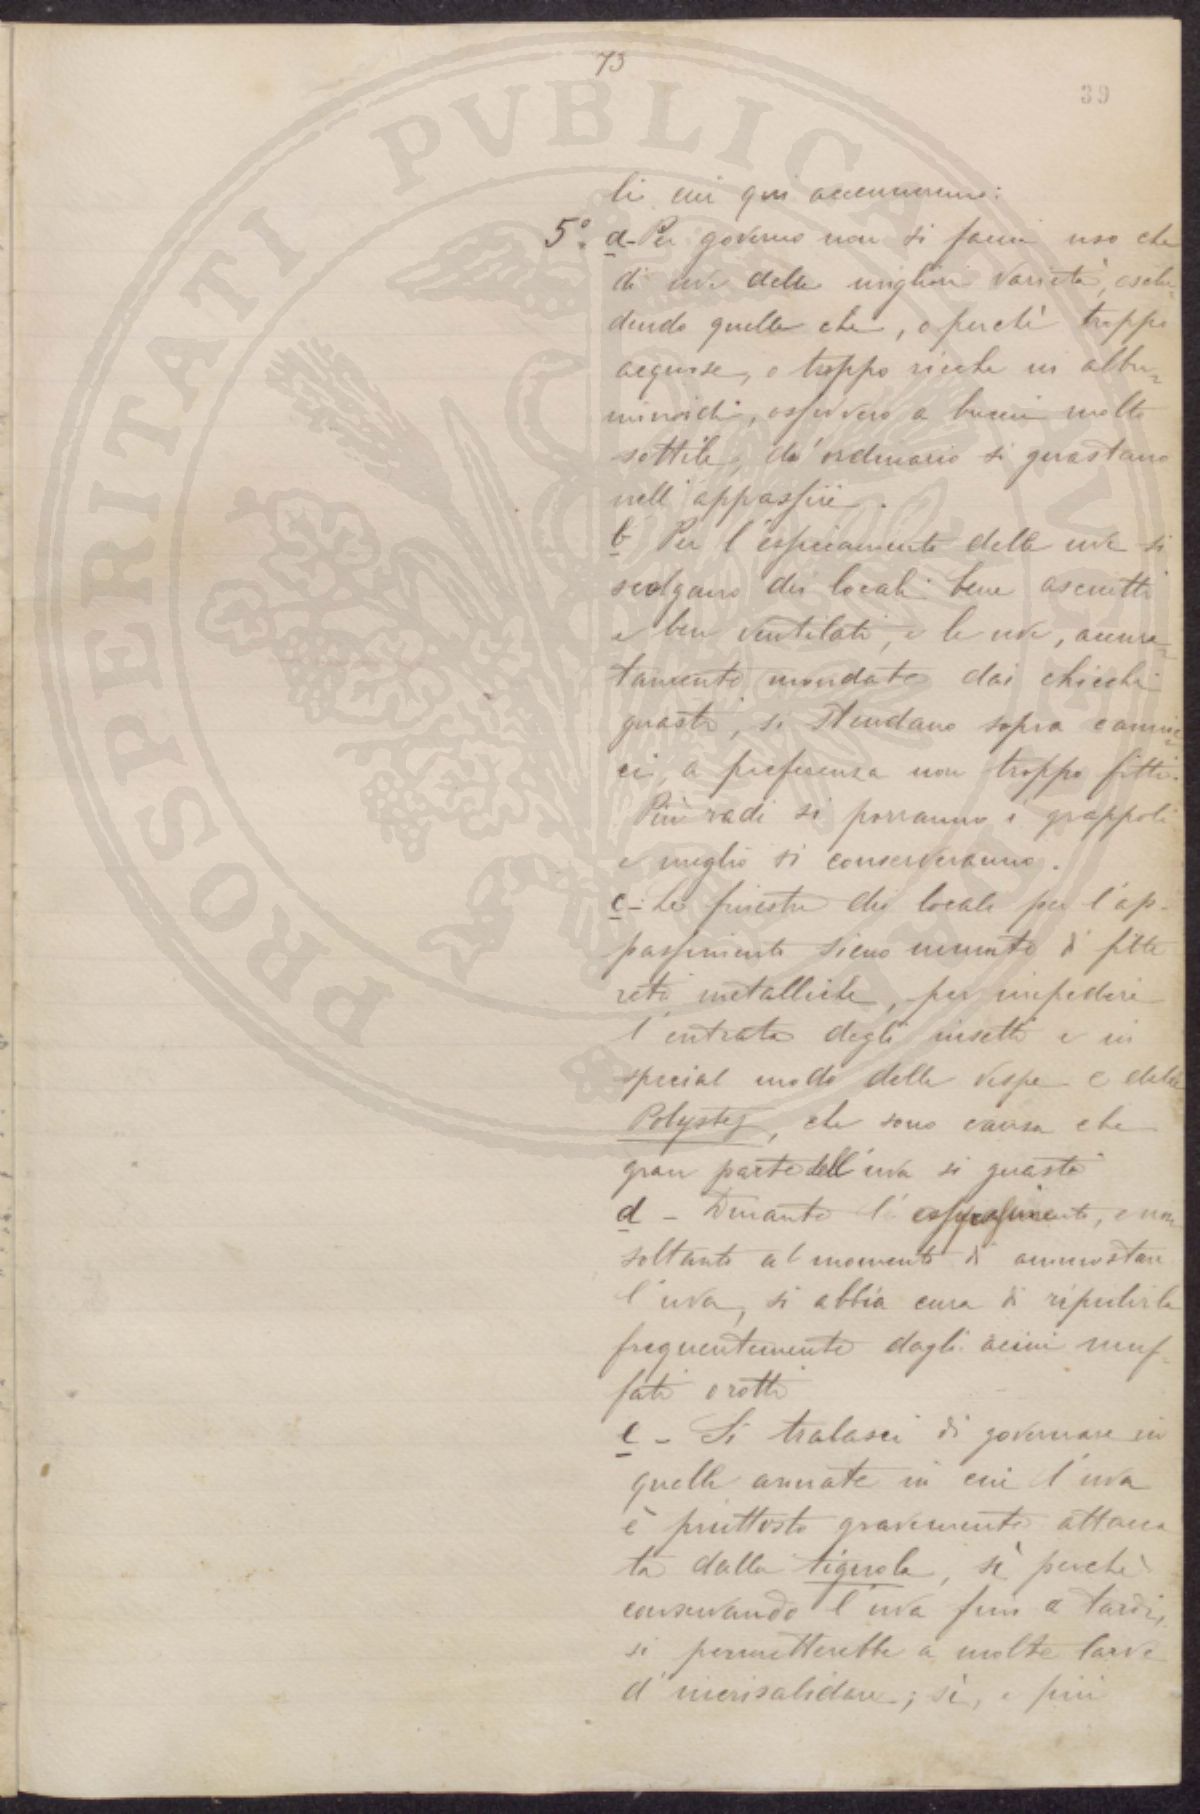 73
39
li cui qui accenneremo:
5°. a - Per governo non si faccia uso che
di uve delle migliori varietà, esclu-
dendo quelle che, o perchè troppo
acquose, o troppo ricche in albu-
minoidi, ossivvero a buccia molto
sottile, d'ordinario si guastano
nell'appassire.
b Per l'essiccamento delle uve si
scelgano dei locali bene asciutti
e ben ventilati, e le uve, accura-
tamente mondate dai chicchi
guasti, si stendano sopra cannic-
ci, a preferenza non troppo fitti.
Più radi si porranno i grappoli
e meglio si conserveranno.
c - Le finestre dei locali per l'ap-
passimento sieno munite di fitte
reti metalliche, per impedire
l'entrata degli insetti e in
special modo delle vespe e delle
Polystes, che sono causa che
gran parte dell'uva si guasti
d - Durante l'appassimento, e non
soltanto al momento di ammostare
l'uva, si abbia cura di ripulirla
frequentemente dagli acini muf-
fati o rotti
e - Si tralasci di governare in
quelle annate in cui l'uva
è piuttosto gravemente attacca
ta dalla tignola, sì perchè
conservando l'uva fino a tardi,
si permetterebbe a molte larve
d'incrisalidare; sì, e più
PROSPERITATI PVBLICAE AVGENDAE